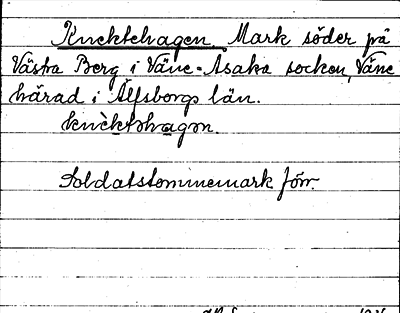 Knektehagen. Mark söder på
Västra Berg i Väne-Åsaka socken, Väne
härad i Älfsborgs län.
knèktəhagən.
Soldatstommemark förr.